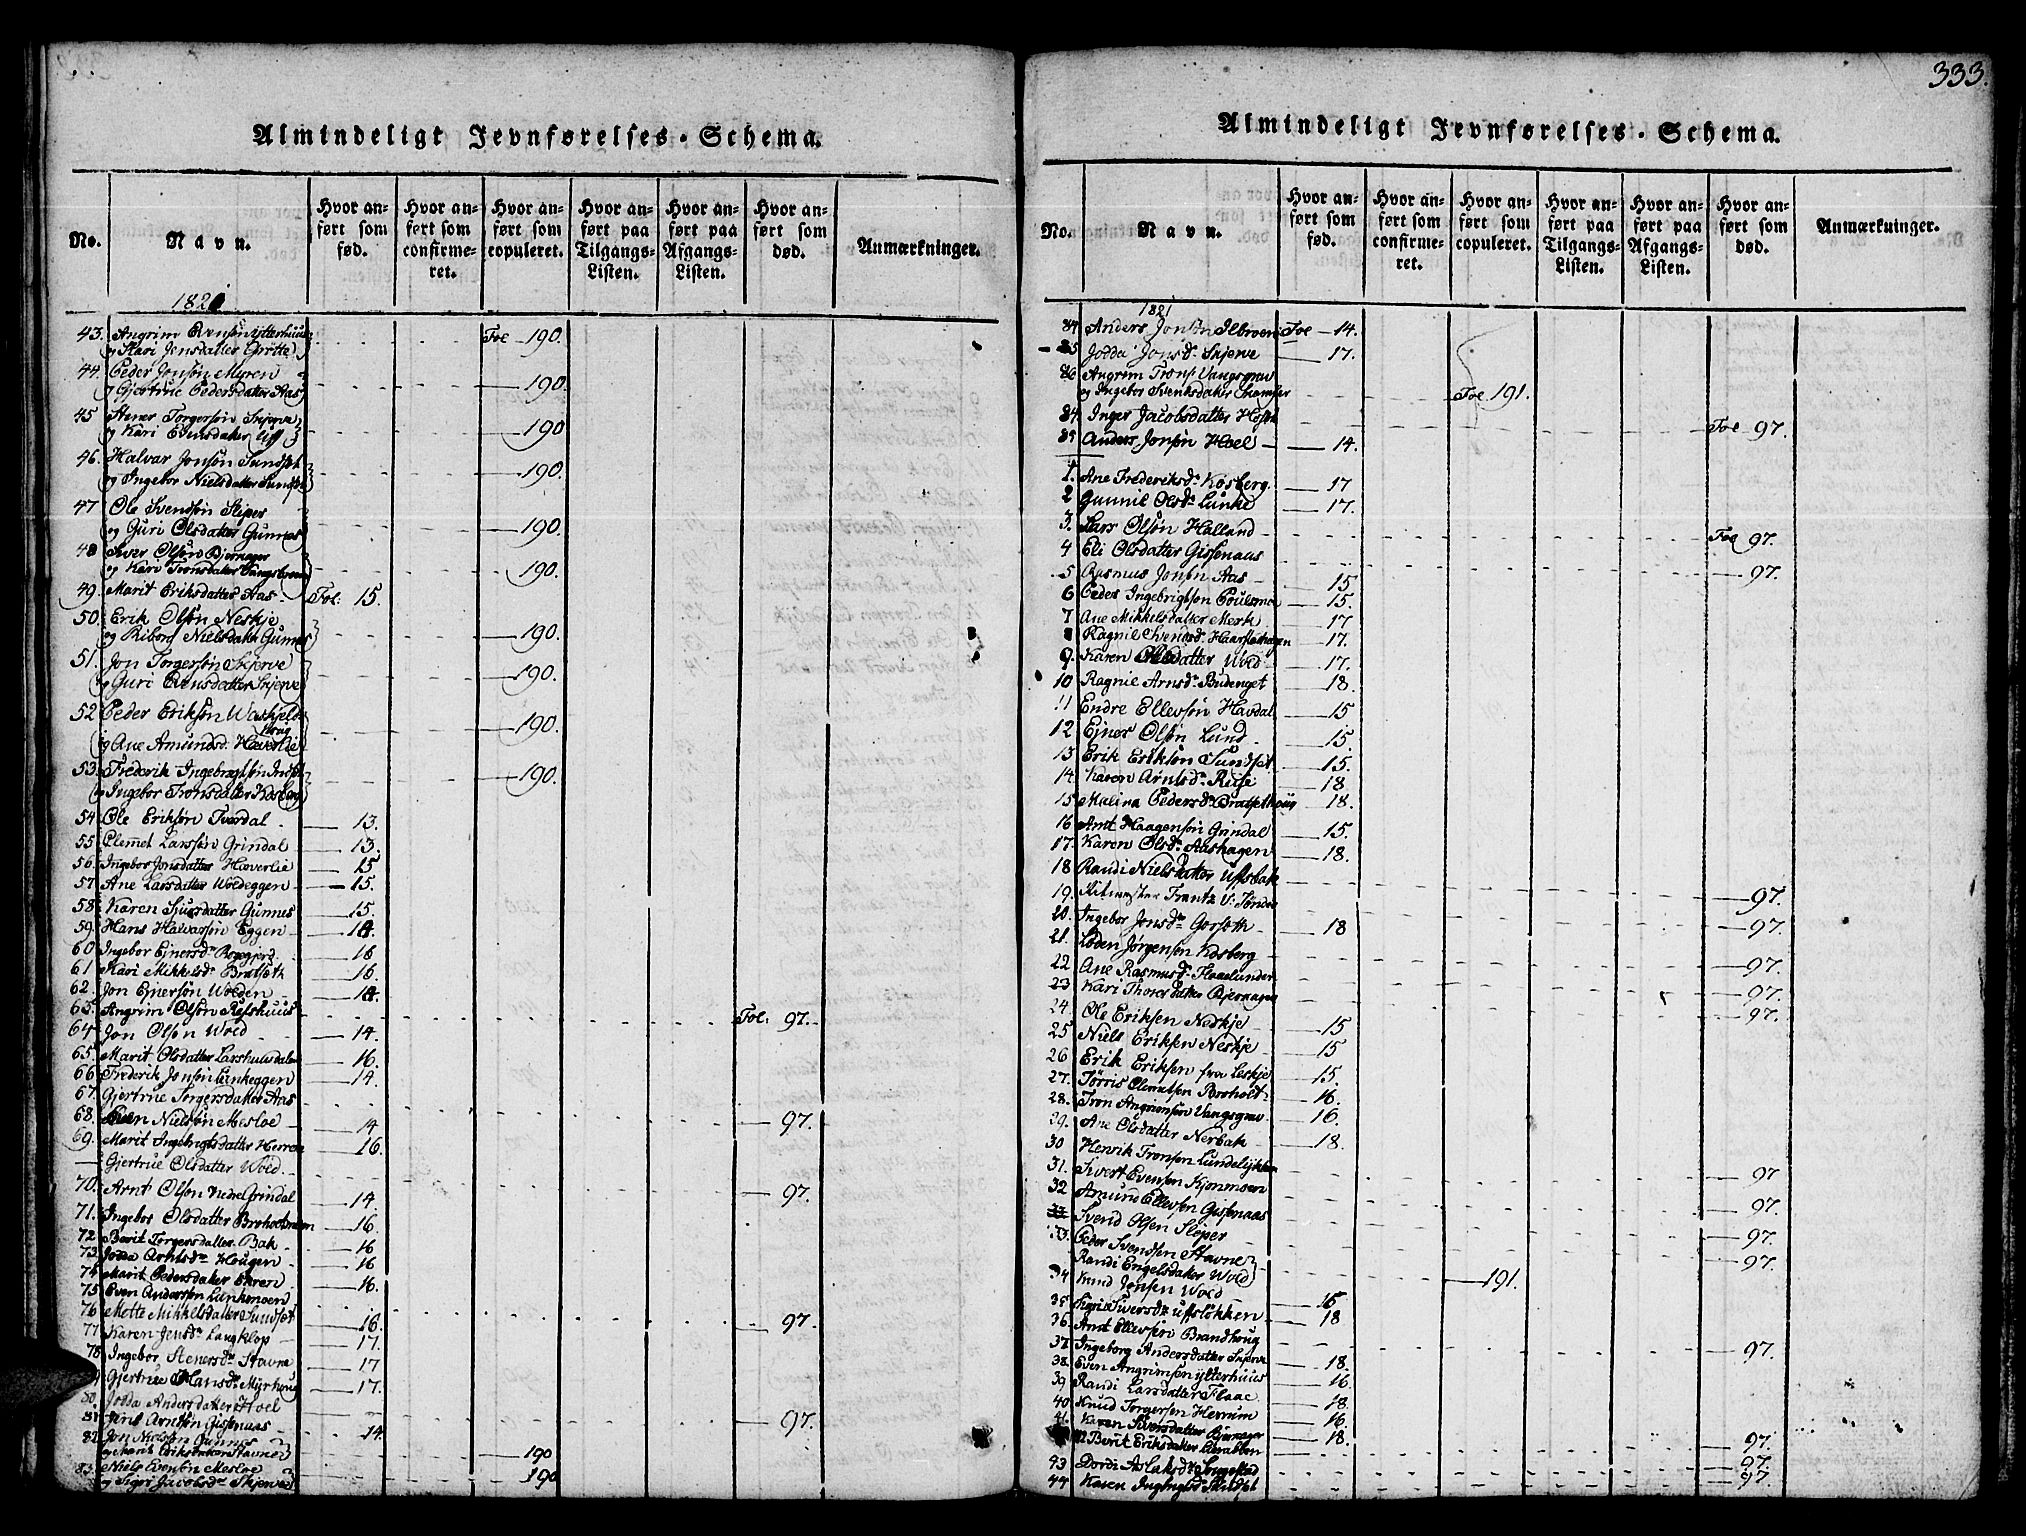 333.
Almindeligt Jevnførelses-Schema.
No.
Navn.
Hvor anført som fød.
Hvor anført som confirmeret.
Hvor anført som copuleret.
Hvor anført paa Tilgangs-Listen.
Hvor anført paa Afgangs-Listen.
Hvor anført som død.
Anmærkninger.
1820
43. Angrim Evensøn Ytterhuus Foe 190.
og Kari Jonsdatter Grøtte
44. Peder Jonsøn Myren
og Gjertrue Pedersdatter Aas 190.
45 Stener Torgersøn Skjerve
og Kari Evensdatter Uff 190
46. Halvar Jonsøn Sundset
og Ingebor Nielsdatter Sundset 190.
47 Ole Svendsøn Sliper
og Guri Olsdatter Gunnes 190.
48 Siver Olsøn Bjernager
og Kari Tronsdatter 190.
49. Marit Eriksdatter Aas Fol: 15.
50. Erik Olsøn Neskje
og Nielsdatter Gunnes 190.
51. Jon Torgersøn Skjerve
og Guri Evensdatter Skjerve 190.
52 Peder Eriksøn
og Ane Amundsd. Hæverlie 190.
53. Frederik Ingebrigtsøn
og Ingebor Tronsdatter Kosberg 190.
54 Ole Eriksøn Tverdal 13.
55 Clemet Larssøn Grindal 13.
56. Ingebor Jonsdatter Hæverlie 15
57. Ane Larsdatter Woldeggen 15.
58. Karen Sjursdatter Gunnes 15.
59. Hans Halvarsøn Eggen 14.
60 Ingebor Ejnersdr 16
61 Kari Mikkelsdr Bratseth 16.
62. Jon Ejnersøn Wolden 14.
63. Angrim Olsøn Refshuus Fol: 97.
64. Jon Olsøn Wold 14.
65. Marit Olsdatter Larshuusdalen 16.
66 Frederik Jonsøn Lenkeggen 14.
67. Gjertrue Torgersdatter Aas
68. Even Nielsøn Mesloe 14 97.
69. Marit Ingebrigtsdatter Herrem 16.
Gjertrue Olsdatter Wold
70. Arnt Olsøn Nedre Grindal 14. 97.
71. Ingebor Olsdatter 16.
72 Berit Torgersdatter Bak 16
73. Jodda Arntsdr Hougen 16
74 Marit Pedersdatter 16.
75 Even Andersøn Lenkmoen
76 Mette Mikkelsdatter Sundset 16.
77 Karen Jensdr Langklop 17. 97.
78 Ingebor Stenersdr Stavne 17
Gjertrue Hansdr Myrhoug 17.
80. Jodda Andersdatter Hoel
81 Arntsøn Gissenaas 14. 97.
82. Jon Nielsøn Gunnes
og Marit Eriksdatter Stavne 190
83. Niels Evensøn Mesloe
og Sigri Jacobsdr Skjerve 190
Almindeligt Jevnførelses-Schema.
No.
Navn.
Hvor anført som fød.
Hvor anført som confirmeret.
Hvor anført som copuleret.
Hvor anført paa Tilgangs-Listen.
Hvor anført paa Afgangs-Listen.
Hvor anført som død.
Anmærkninger.
1821
84 Anders Jonsøn Ilbroen Foe 14.
85 Jodda Jonsdr Skjerve 17.
86 Angrim Trons. Vangsgrav
og Ingebor Svendsdatter Foe 191.
84. Inger Jacobsdatter Foe 97.
85 Anders Jonsøn Hoel 14.
1. Ane Frederiksdr Kosberg 17
2 Gunnil Olsdr Lunke 17.
3. Lars Olsøn Halland Foe 97.
4 Eli Olsdatter Gissenaas 97.
5 Rasmus Jonsøn Aas 15
6 Peder Ingebrigtsøn 15.
7 Ane Mikkelsdatter Merk 17
8 Ragnil Svendsd. 17.
9. Karen Olsdatter Wold 17.
10 Ragnil Arnsdr Budenget 18.
11 Endre Ellevsøn Havdal 15
12 Ejner Olsøn Lund 15.
13 Erik Eriksøn Sundset 15.
14. Karen Arntsdr Riise 18
15 Malina Pedersdr Bratsethoug 18.
16 Arnt Haagensøn Grindal 15.
17. Karen Olsdr Aashagen 18.
18 Randi Nielsdatter Ufsbak 97.
19. Ritmester Frantz 97.
20. Ingebor Jonsdr Gorseth 18
21. Loden Jørgensøn Kosberg 97.
22 Ane Rasmusdr 97.
23 Kari Thoresdatter Bjernager 97.
24 Ole Eriksen Neskje 15
25 Niels Eriksen Neskje 15
26 Erik Eriksen fra Leskje 15.
27. Tørris Clemetsen 16.
28. Tron Angrimsen Vangsgrav 16.
29. Ane Olsdatter Nerbak 18.
30 Henrik Tronsen 97
31. Sivert Evensen Kjonmoen 97.
32 Amund Ellevsen Gissenaas
33 Svend Olsen Sliper 97.
33. Peder Svendsen Stavne 97.
Randi Engelsdatter Wold
34 Knud Jonsen Wold 191.
35 Siversdr Ufsløkken 18
36. Arnt Ellevsøn Brandhoug
37. Ingeborg Andersdatter Skjerve 18. 97.
38. Even Angrimsen Ytterhuus 16
39 Randi Larsdatter Flaae 18.
40 Knud Torgersen Herrem 16.
41. Karen Siversdatter Bjernager 18.
Berit Eriksdatter 97.
43 Dordi Aslaksdr 97.
44 Karen 97.